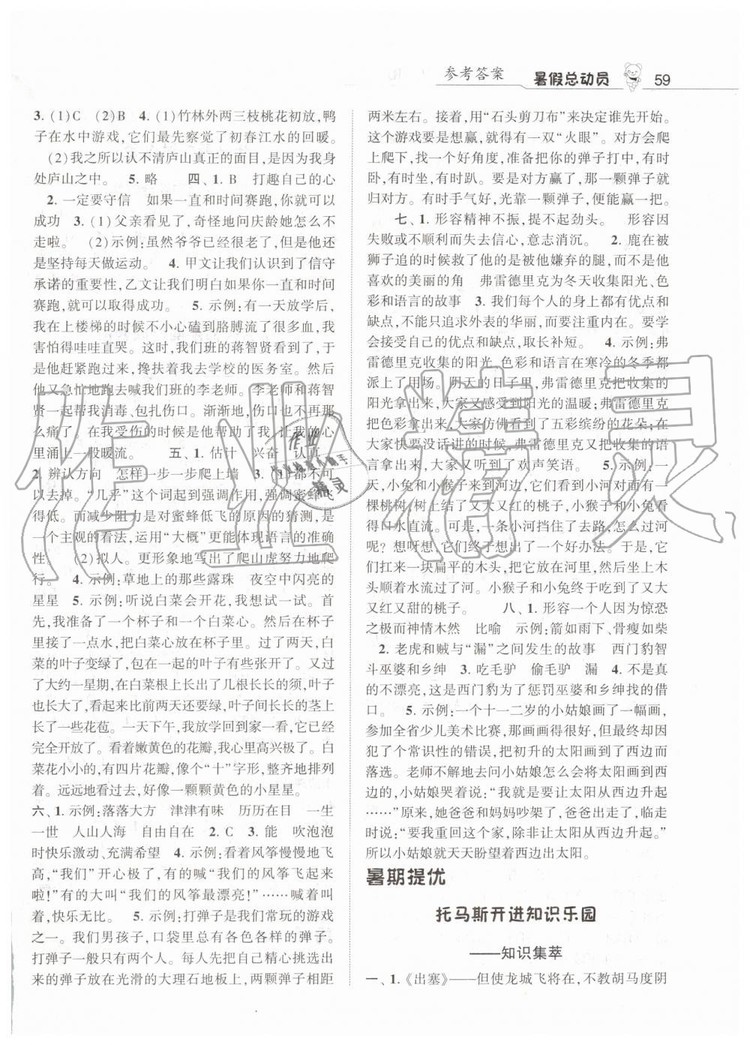 参考答案 暑假总动员 59
3. (1)C (2)B 4. (1)竹林外两三枝桃花初放,鸭
子在水中游戏,它们最先察觉了初春江水的回暖。
(2)我之所以认不清庐山真正的面目,是因为我身
处庐山之中。 5. 略 四、1. B 打趣自己的心
2. 一定要守信 如果一直和时间赛跑,你就可以
成功 3. (1)父亲看见了,奇怪地问庆龄她怎么不
走啦。 (2)示例:虽然爷爷已经很老了,但是他还
是坚持每天做运动。 4. 甲文让我们认识到了信守
承诺的重要性,乙文让我们明白如果一直和时间
赛跑,就可以取得成功。 5. 示例:有一次放学后,
我在上楼梯的时候不小心磕到胳膊流了很多血,我
害怕得哇哇直哭。这时,我们班的蒋智贤看到了,于
是他赶紧跑过来,搀扶着我去学校的医务室。然后
他又急忙地跑去喊我们班的李老师。李老师和蒋智
贤一起帮我消毒、包扎伤口。渐渐地,伤口也不再那
么痛了。在我受伤的时候是他帮助了我,让我的心
里涌上一股暖暖的感觉。 五、1. 估计 兴奋 认真
2. 辨认方向 怎样一步一步爬上墙 3. (1)都不可
以去掉。“几乎”这个词起到强调作用,强调蜜蜂飞
得低。而减少阻力是我对蜜蜂低飞的原因的猜测,是
一个主观的看法,运用“大概”更能体现语言的准确
性。 (2)拟人。更形象地写出了爬山虎努力地爬
行。 4. 示例:草地上的那些露珠 夜空中闪亮的
星星 5. 示例:听说白菜会开花,我想试一试。首
先,我准备了一个杯子和一个白菜心。然后在杯子
里接了一点水,把白菜心放在杯子里。过了两天,白
菜的叶子变绿了,包在一起的叶子有些张开了。又
过了大约一星期,在白菜心上长出了很多绿叶,叶子
也展开了,看起来比前两天还要绿,叶子中心还长出
一些小花苞。一天下午,我放学回到家一看,它已经
开花了。看着嫩黄色的花瓣,我的心里开心极了。白
菜花小小的,有四片花瓣,像个“十”字形,整齐地排列
着。远远地看去,好像一颗颗黄色的小小星星。
六、1. 示例:落落大方 津津有味 历历在目 一生
一世 人山人海 自由自在 2. C 3. 能 吹泡泡
时快乐激动、充满希望 4. 示例:看着风筝慢慢地飞
高,“我们”开心极了,有的喊着“我们的风筝飞起来
啦!”有的大叫“我们的风筝最漂亮!”……喊着叫着,
快乐无比。 5. 示例:打弹子是我们常玩的游戏之
一。我们男孩子,口袋里总有各色各样的弹子。打
弹子时先在光滑的大理石地板上,两颗弹子开始距
两米左右。接着,用“石头剪刀布”来决定谁先开始。
这个游戏要是想赢,就得有一双“火眼”。对方会爬
上爬下,左躲右闪,准备把你的弹子打中,有时
卧,有时坐,有时趴……要是对方赢了,那一颗弹子就
归对方。有时手气好,光一颗弹子,便能赢一把。
七、1. 形容精神不振,提不起劲头。 形容因
失败或不顺利而失去信心,意志消沉。 2. 鹿在被
狮子追的时候救了他的是被他嫌弃的腿,而不是他
喜欢的美丽的角 弗雷德里克为冬天收集阳光、色
彩和语言的故事 3. 我们每个人的身上都有优点和
缺点,不能只追求外表的华丽,而要讲求实用。要学
会接受自己的优点和缺点,取长补短。 4. 示例:弗
雷德里克收集的阳光、色彩和语言在寒冷的冬季都
派上了用场。阴天的日子里,弗雷德里克把收集的
阳光拿出来,大家又感受到阳光的温暖;弗雷德里克
把收集的颜色拿出来,大家仿佛看到了五彩缤纷的
花朵;在大家没有话讲的时候,弗雷德里克把收集的
语言拿出来,大家又听到了欢声笑语。 5. 示例:一
天,小兔和小猴子来到河边,它们看到小河对面有一
棵桃树,树上结了又大又红的桃子,小猴子和小兔馋
得口水直流。可是,一条小河挡住了去路,怎么过河
呢?突然,它们想出了一个好办法。于是,只见它
们扛来一块扁平的木头,把它放在小河上,在木头
底下,河水顺利流过了。小猴子和小兔终于摘到了又
大又红又甜的桃子。 八、1. 形容人因为惊恐
之极而神情木然 比喻 示例:箭如雨下、骨瘦如柴
2. 老虎和贼与“漏”之间发生的故事 西门豹智
斗巫婆和乡绅 3. 吃毛驴 偷毛驴 漏 4. 不是真
的不漂亮,这是西门豹为了惩罚巫婆和乡绅找的借
口。 5. 示例:一个十一二岁的小姑娘画了一幅画,
参加全省少儿美术比赛,那画画得非常好,但最终因
犯了个常识性的错误,把初升的太阳画到了西边而
落选。老师不解地去问小姑娘怎么会将太阳画到西
边时,小姑娘流着泪说:“我想让太阳从西边升起
……”原来,她爸爸和妈妈吵架了,爸爸出走了,临走
时说:“要我重回这个家,除非让太阳从西边升起。”
所以小姑娘就天天盼望着西边出太阳。
暑期提优
托马斯开进知识乐园
——知识集萃
一、1. 《出塞》——但使龙城飞将在,不教胡马度阴
作业精灵